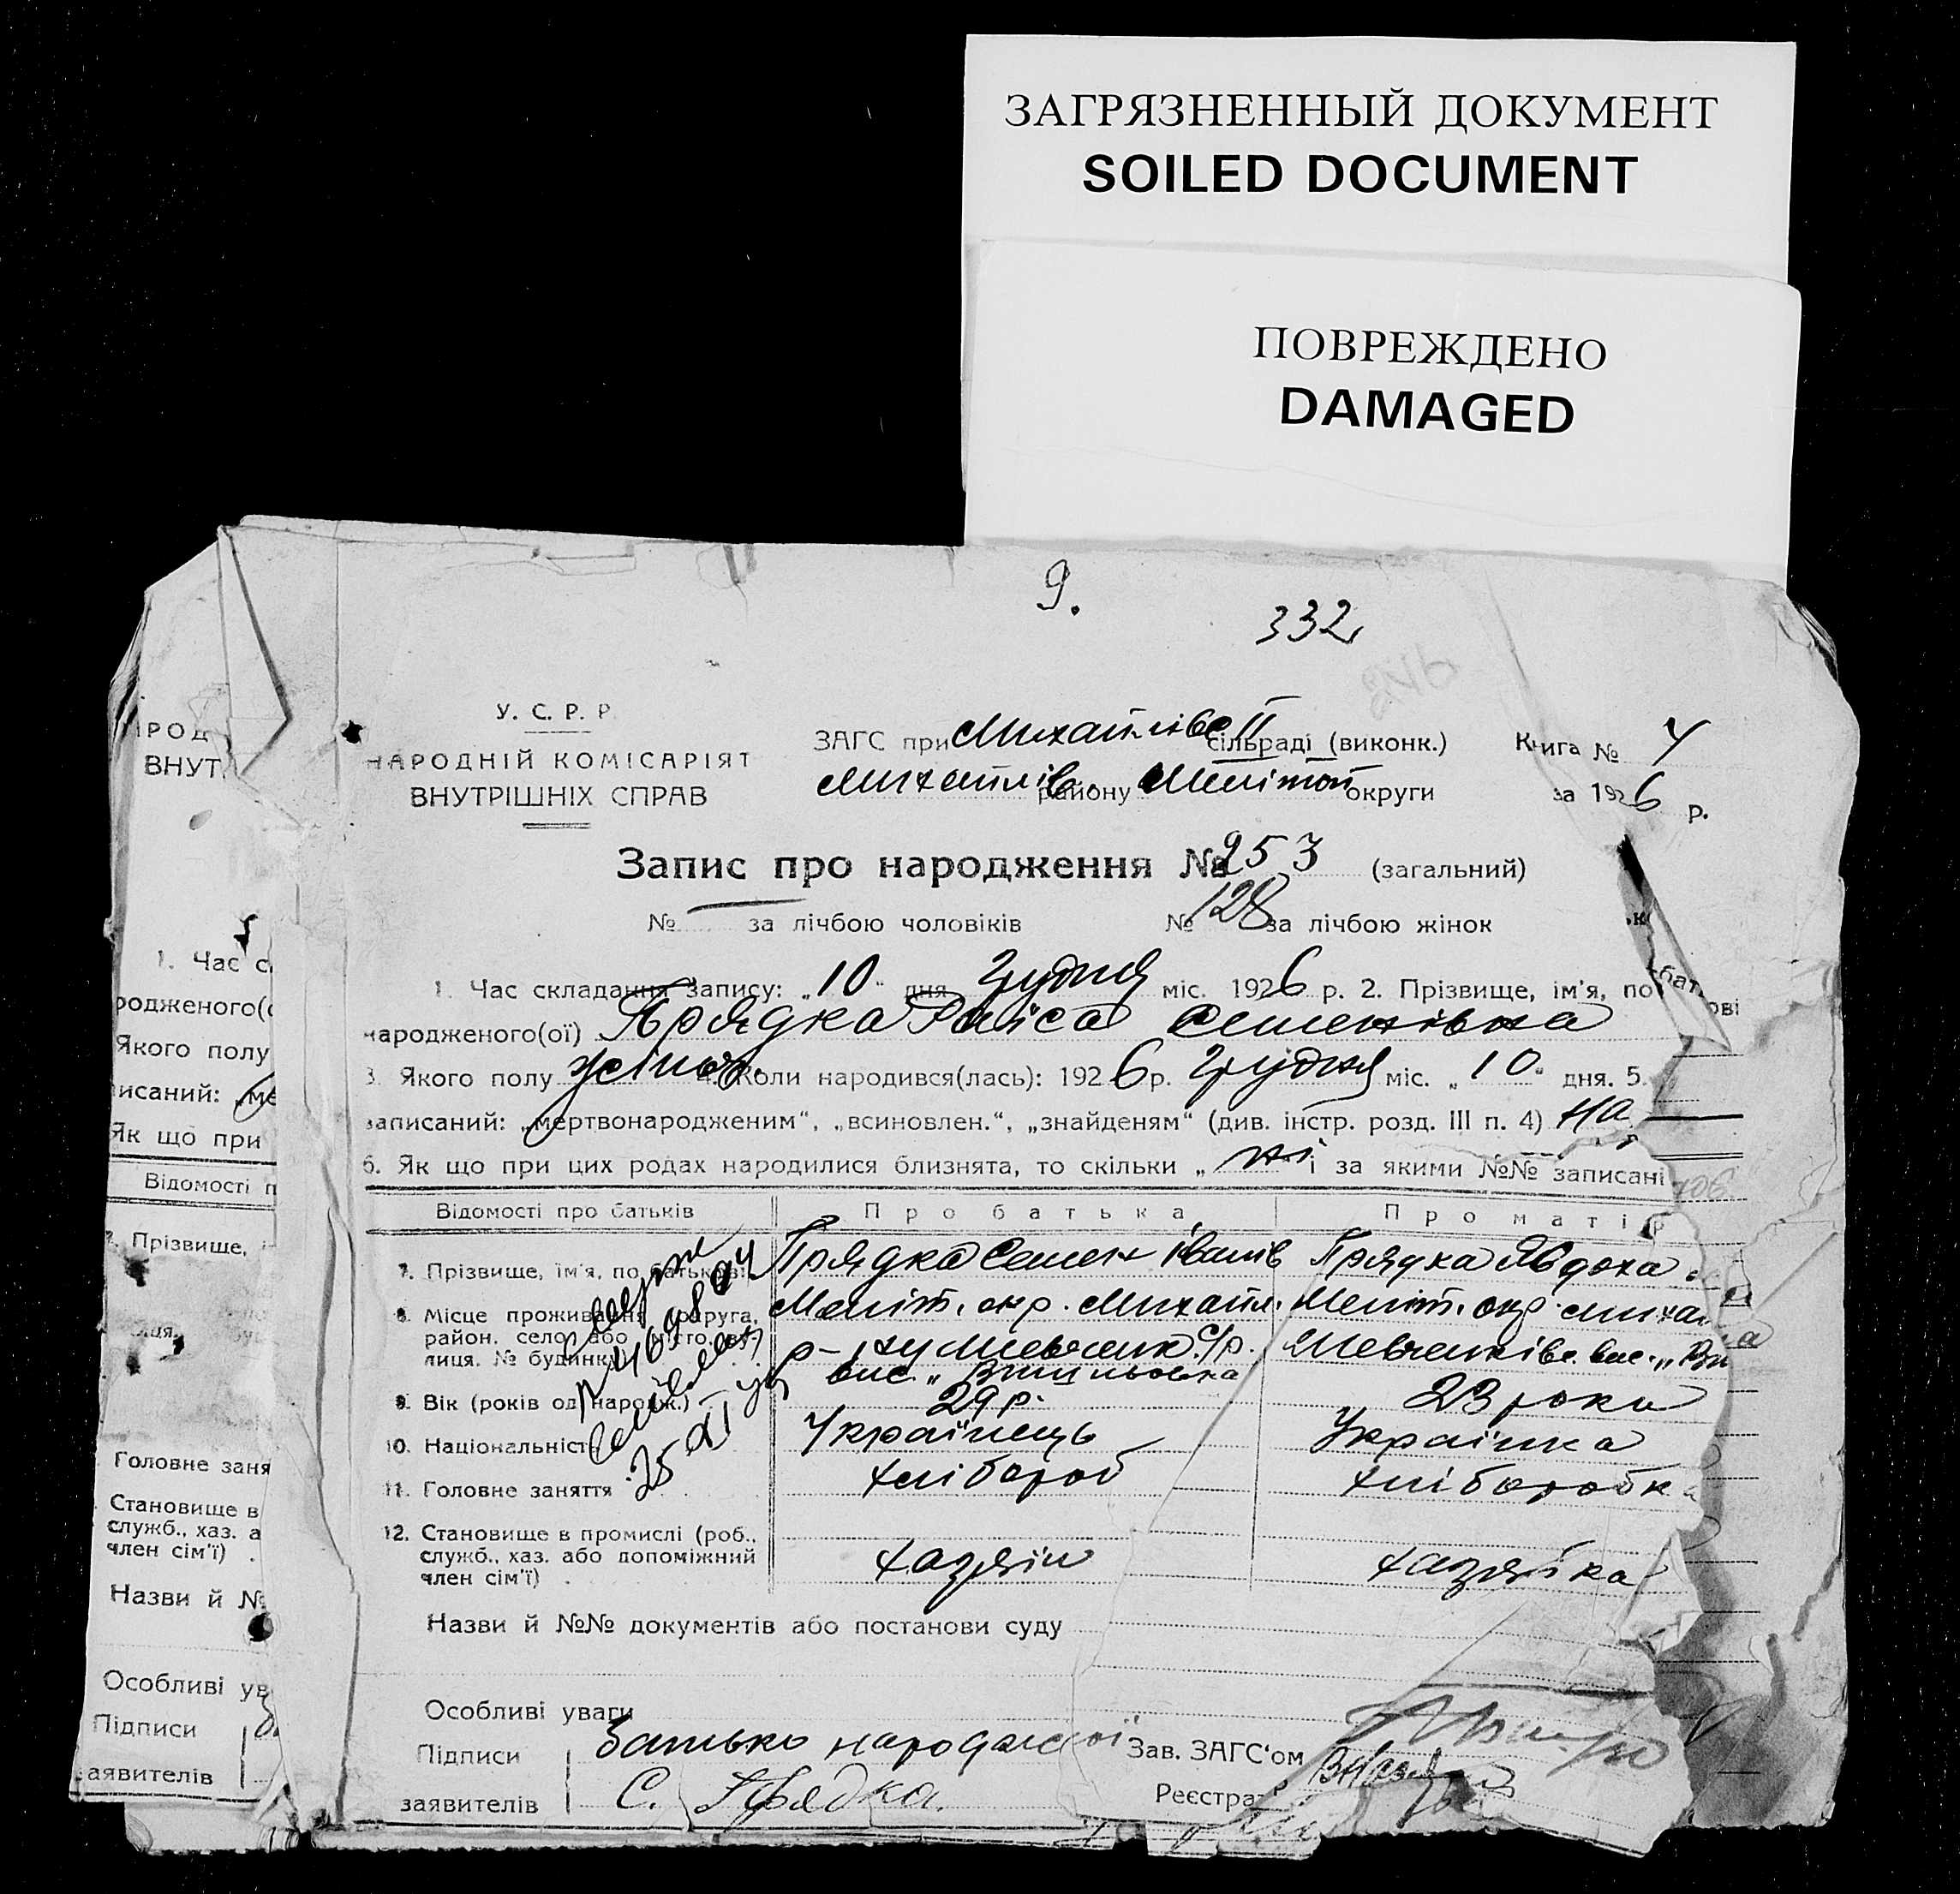 ЗАГРЯЗНЕННЫЙ ДОКУМЕНТ
SOILED DOCUMENT
ПОВРЕЖДЕНО
DAMAGED
9.
332
У. С. Р. Р.
НАРОДНІЙ КОМІСАРІЯТ
ВНУТРІШНІХ СПРАВ
ЗАГС при Михайлівс II сільраді (виконк.)
Михайлів. району Мелітоп округи
Книга №
за 1926 р.
Запис про народження № 253 (загальний)
№ — за лічбою чоловіків № 128 за лічбою жінок
1. Час складання запису: „10" дня Грудня міс. 1926 р. 2. Прізвище, ім'я, по
народженого(ої) Прядка Раіса Семенівна
3. Якого полу жіноч. 4. Коли народився(лась): 1926 р. Грудня міс. „10" дня. 5.
записаний: „мертвонародженим", „всиновлен.", „знайденям" (див. інстр. розд. III п. 4)
6. Як що при цих родах народилися близнята, то скільки „ні і за якими №№ записані
Відомості про батьків Про батька Про матір
7. Прізвище, ім'я, по батькові Прядка Семен Іванів Прядка Явдоха
8. Місце проживання округа, Меліт. окр. Михайл. Меліт. окр. Михай
район, село або місто, ву- р-ну Шевченк. с/р. Шевченківс. вис. „Ви
лиця. № будинку вис. „Вишньовка
9. Вік (років од народж.) 29 р. 23 роки
10. Національність Українець Украінка
11. Головне заняття хлібороб хліборобка
12. Становище в промислі (роб.,
служб., хаз. або допоміжний хазяін хазяйка
член сім'ї)
Назви й №№ документів або постанови суду
Особливі уваги
Підписи Батько народженої Зав. ЗАГС'ом
заявителів С. Прядка. Реєстра
РОД
ВНУТ
1. Час с
родженого(
Якого полу
исаний: „ме
Як що при
Відомості п
Прізвище,
Головне заня
Становище в
служб., хаз. а
член сім'ї)
Назви й №
Особливі ув
Підписи
заявителів